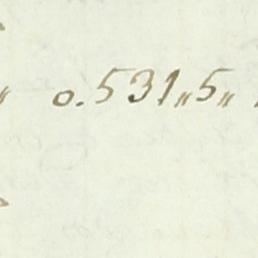 o.531„5„